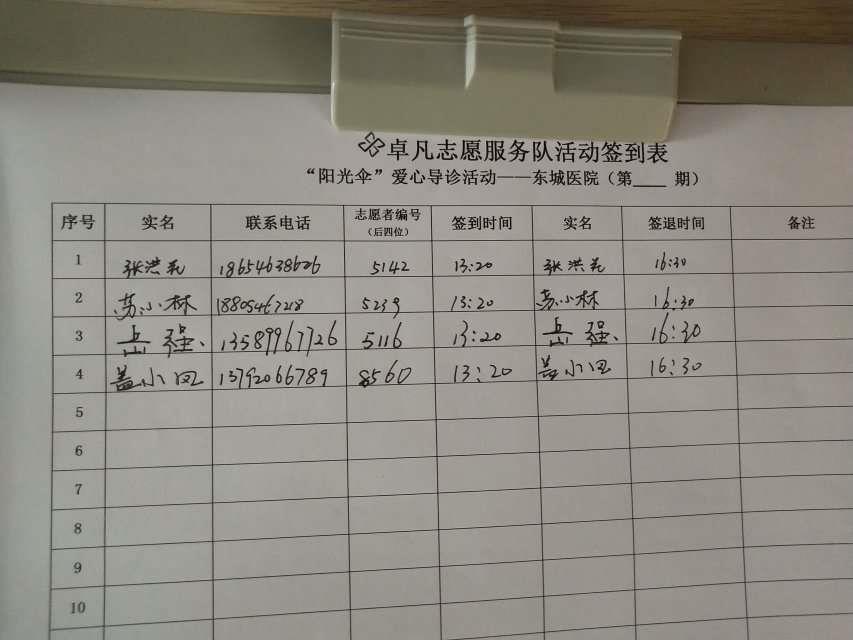 卓凡志愿服务队活动签到表
“阳光伞”爱心导诊活动——东城医院（第____ 期）
序号 实名 联系电话 志愿者编号（后四位） 签到时间 实名 签退时间 备注
1 张洪 18654638626 5142 13:20 张洪 16:30
2 苏小林 18805467218 5239 13:20 苏小林 16:30
3 岳强 13589967726 5116 13:20 岳强 16:30
4 盖小凤 13792066789 8560 13:20 盖小凤 16:30
5
6
7
8
9
10